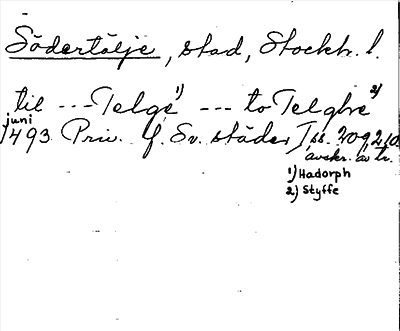 Södertälje, stad, Stockh. l.
til --- Telge 1) --- to Telghe 2)
juni
1493 Priv. f. Sv. städer I ss. 209, 210.
avskr. av tr.
1) Hadorph
2) Styffe